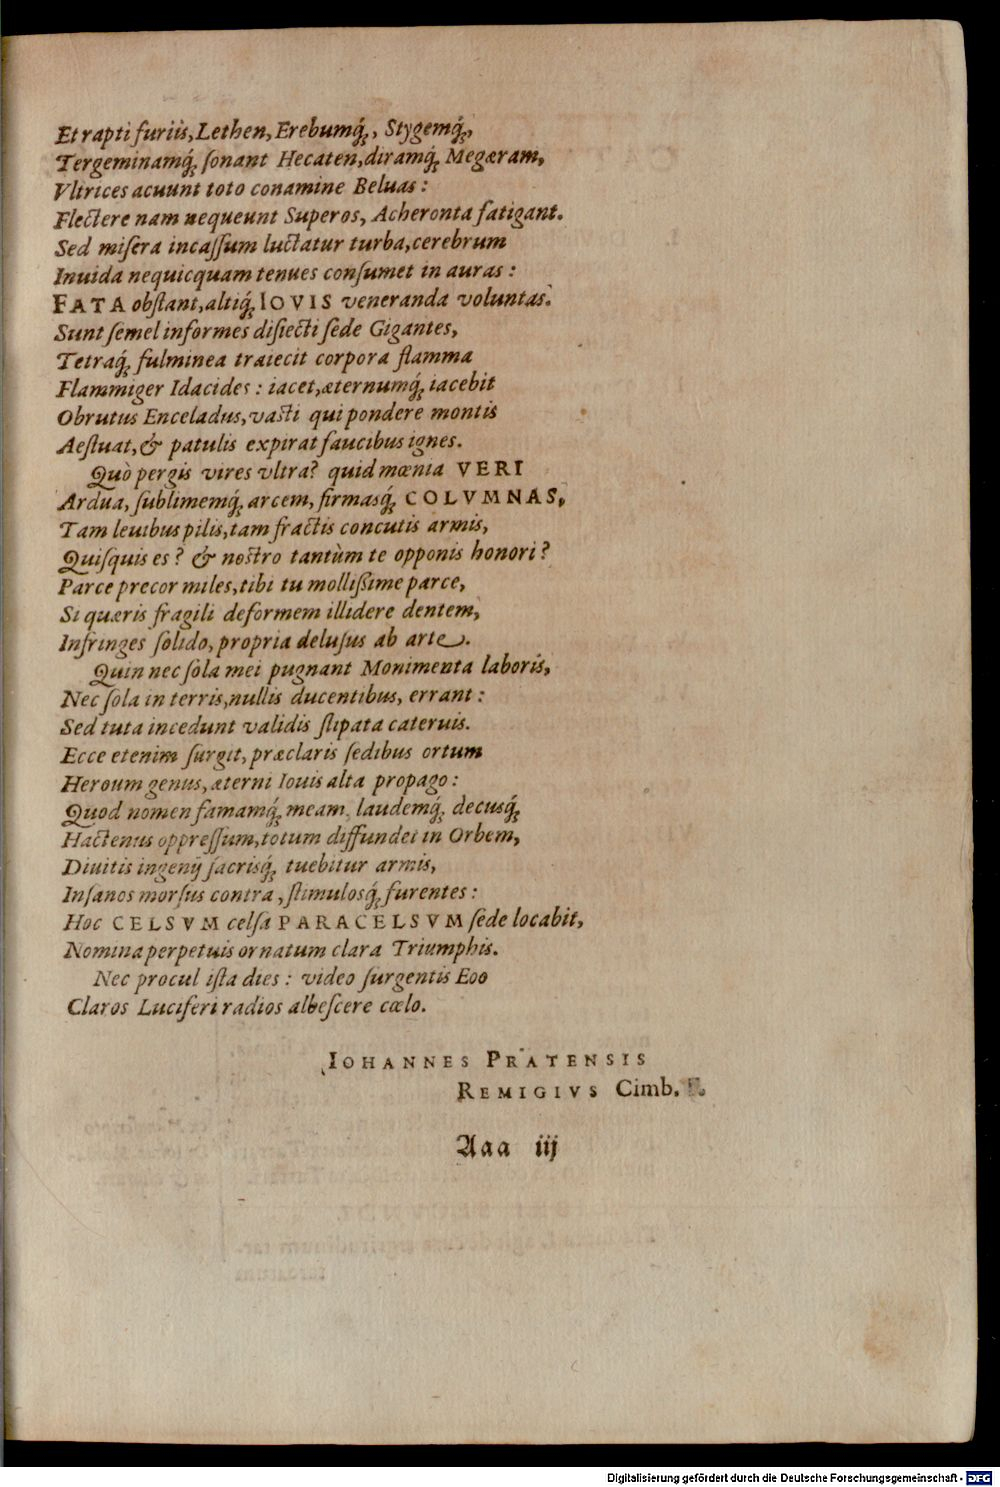 Et rapti furiis, Lethen, Erebumq́;, Stygemq́;,
Tergeminamq́; ſonant Hecaten, diramq́; Megæram,
Vltrices acuunt toto conamine Beluas:
Flectere nam nequeunt Superos, Acheronta fatigant.
Sed miſera incaſſum luctatur turba, cerebrum
Inuida nequicquam tenues conſumet in auras:
FATA obſtant, altiq́; IOVIS veneranda voluntas.
Sunt ſemel informes diſiecti ſede Gigantes,
Tetraq́; fulminea traiecit corpora flamma
Flammiger Idacides: iacet, æternumq́; iacebit
Obrutus Enceladus, vasti qui pondere montis
Aeſtuat, & patulis expirat faucibus ignes.
Quò pergis vires vltra? quid mœnia VERI
Ardua, ſublimemq́; arcem, firmasq́; COLVMNAS,
Tam leuibus pilis, tam fractis concutis armis,
Quiſquis es? & nostro tantùm te opponis honori?
Parce precor miles, tibi tu mollißime parce,
Si quæris fragili deformem illidere dentem,
Infringes ſolido, propria deluſus ab arte.
Quin nec ſola mei pugnant Monimenta laboris,
Nec ſola in terris, nullis ducentibus, errant:
Sed tuta incedunt validis ſtipata cateruis.
Ecce etenim ſurgit, præclaris ſedibus ortum
Heroum genus, æterni Iouis alta propago:
Quod nomen famamq́; meam, laudemq́; decusq́;
Hactenus oppreſſum, totum diffundet in Orbem,
Diuitis ingenij ſacrisq́; tuebitur armis,
Inſanos morſus contra, ſtimulosq́; furentes:
Hoc CELSVM celſa PARACELSVM ſede locabit,
Nomina perpetuis ornatum clara Triumphis.
Nec procul iſta dies: video ſurgentis Eoo
Claros Luciferi radios albeſcere cœlo.
IOHANNES PRATENSIS
REMIGIVS Cimb.
Aaa iij
Digitalisierung gefördert durch die Deutsche Forschungsgemeinschaft - DFG